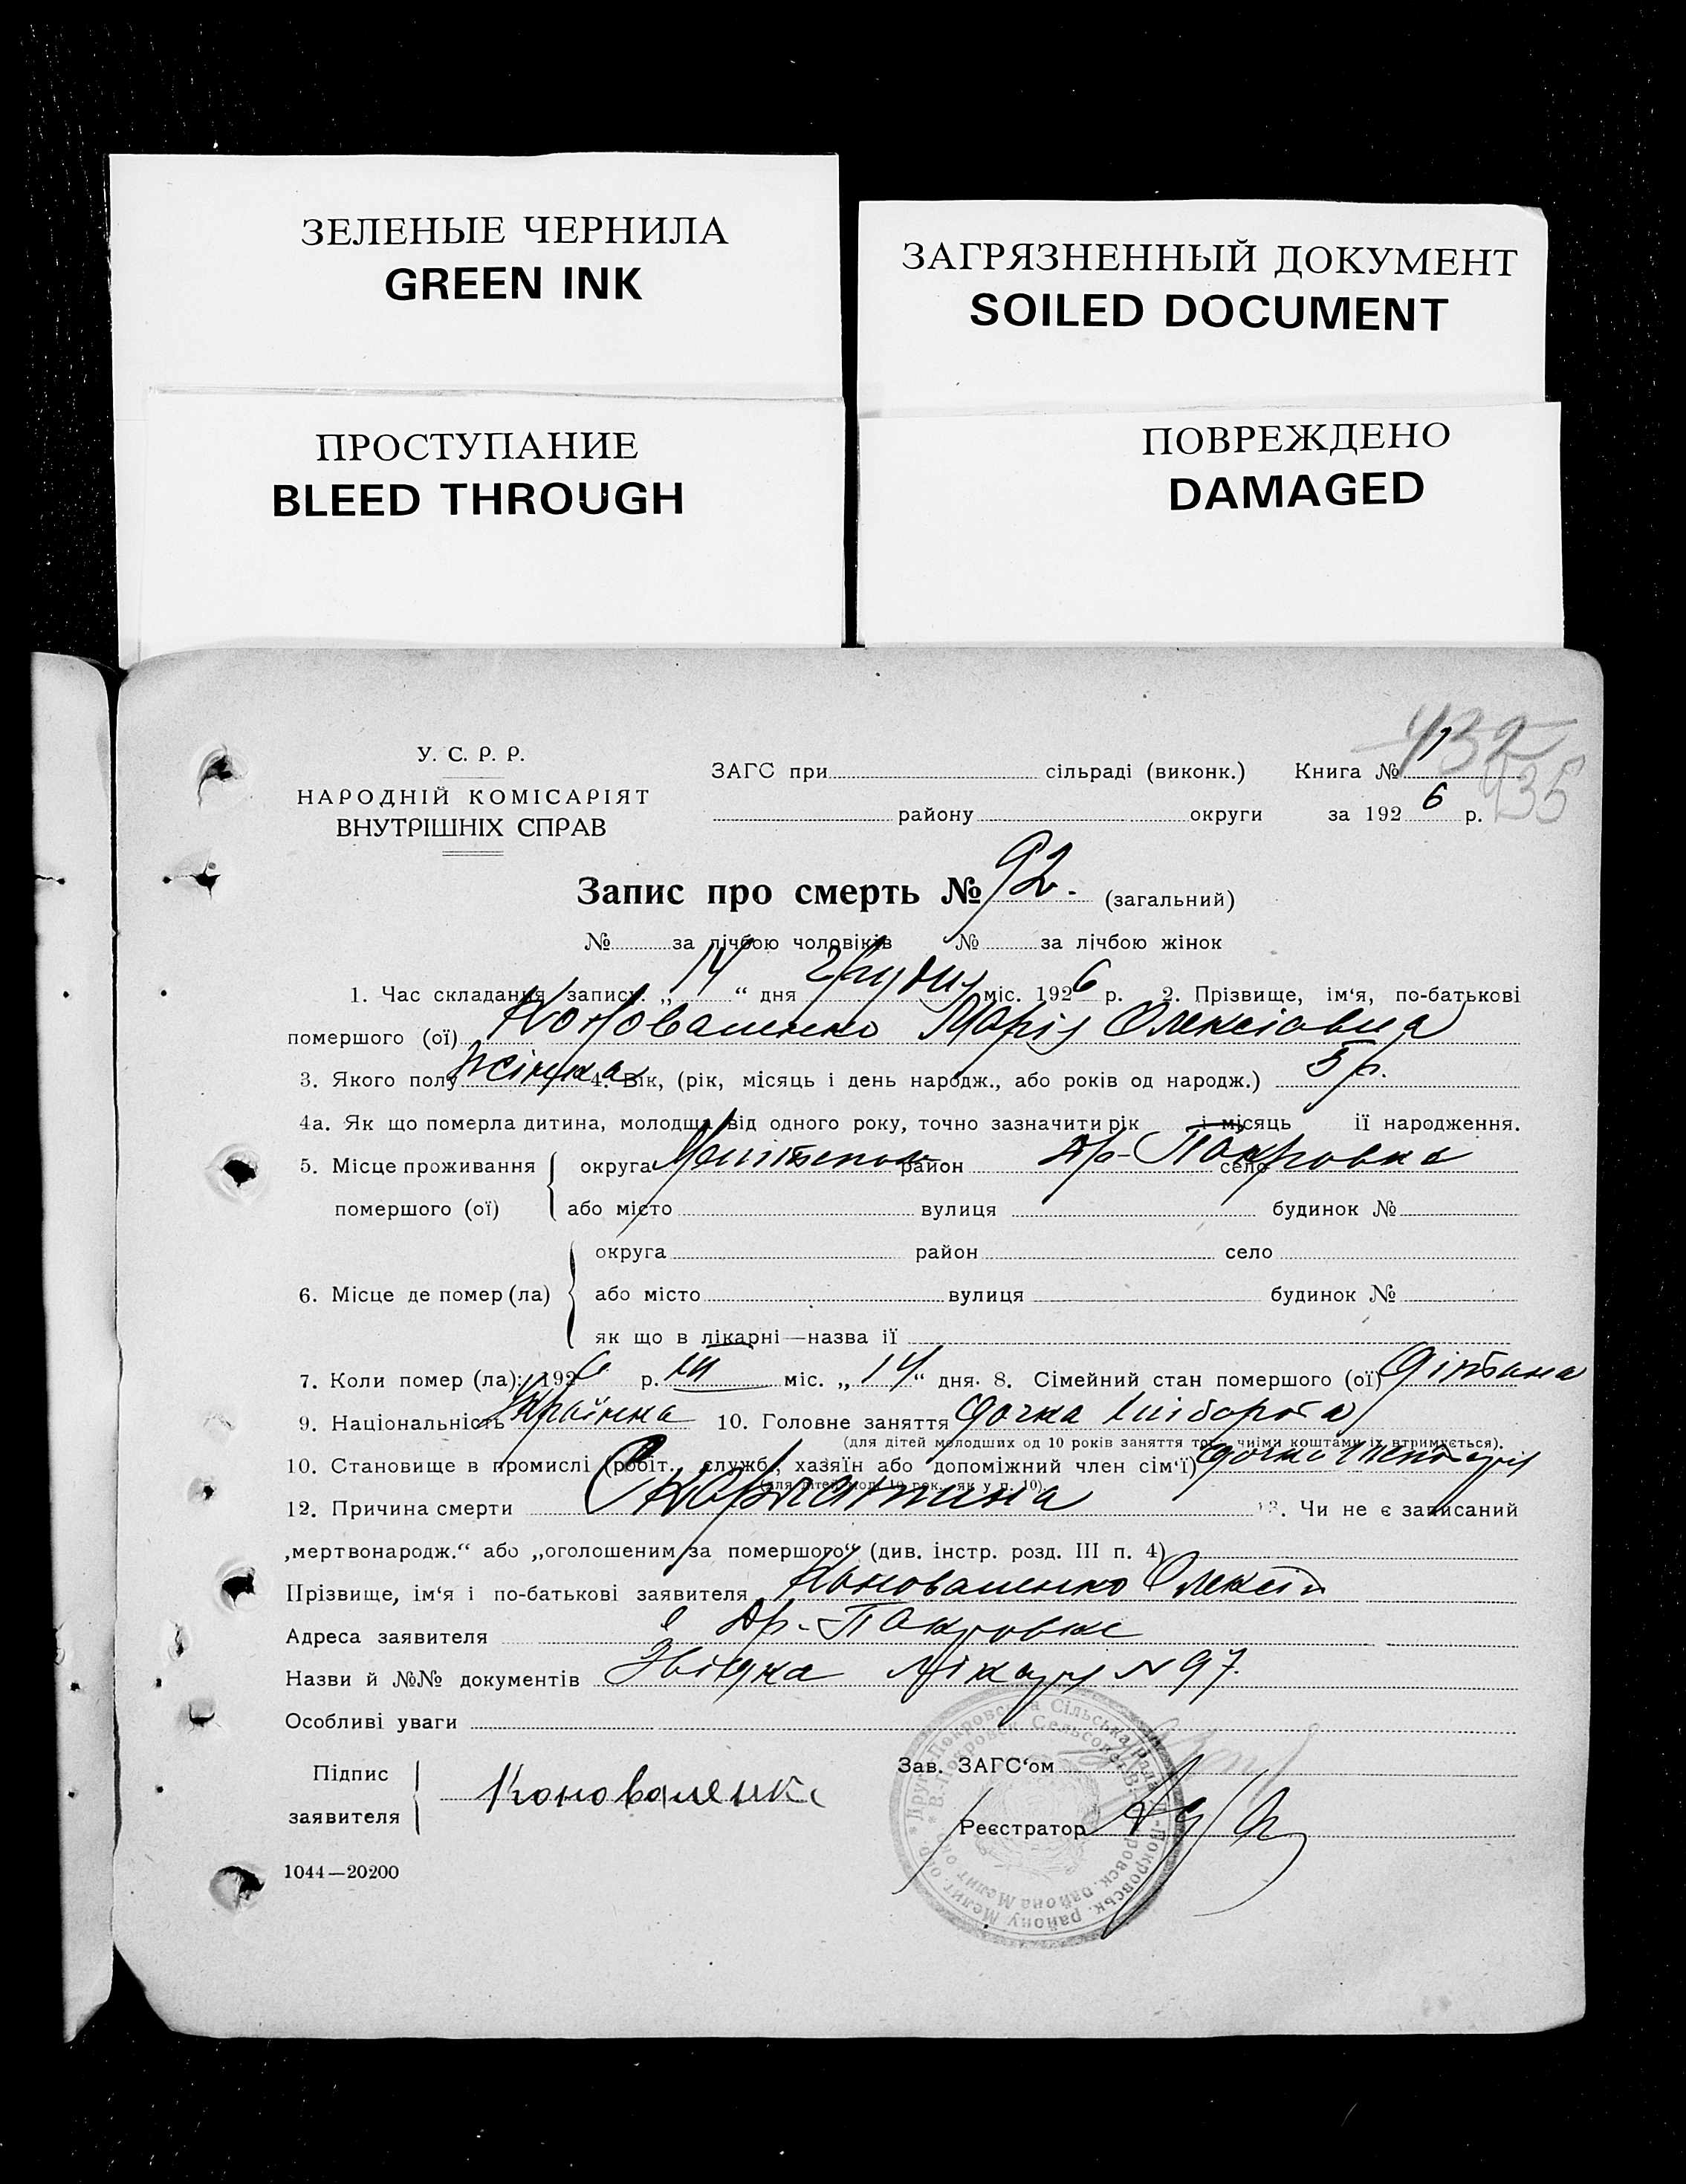 ЗЕЛЕНЫЕ ЧЕРНИЛА
GREEN INK
ЗАГРЯЗНЕННЫЙ ДОКУМЕНТ
SOILED DOCUMENT
ПРОСТУПАНИЕ
BLEED THROUGH
ПОВРЕЖДЕНО
DAMAGED
432
435
У. С. Р. Р.
НАРОДНІЙ КОМІСАРІЯТ
ВНУТРІШНІХ СПРАВ
ЗАГС при сільраді (виконк.) Книга №
району округи за 1926 р.
Запис про смерть № 92. (загальний)
№ за лічбою чоловіків № за лічбою жінок
1. Час складання запису: „14“ дня грудн міс. 1926 р. 2. Прізвище, ім‘я, по-батькові
помершого (ої) Коноваленко Марія Олексіовна
3. Якого полу жінка 4. Вік, (рік, місяць і день народж., або років од народж.) 5 р.
4а. Як що померла дитина, молодша від одного року, точно зазначити рік і місяць її народження.
5. Місце проживання помершого (ої) округа район Др-Покровка село
або місто вулиця будинок №
6. Місце де помер (ла) округа район село
або місто вулиця будинок №
як що в лікарні—назва її
7. Коли помер (ла): 1926 р. міс. „14“ дня. 8. Сімейний стан помершого (ої) дітина
9. Національність Українка 10. Головне заняття дочка хлібороба
(для дітей молодших од 10 років заняття того, чиїми коштами їх втримується).
10. Становище в промислі (робіт., службֹ., хазяїн або допоміжний член сім‘ї) дочка
(для дітей мол. 10 рок. як у п. 10).
12. Причина смерти Скорлатина 13. Чи не є записаний
„мертвонародж.“ або „оголошеним за помершого“ (див. інстр. розд. III п. 4)
Прізвище, ім‘я і по-батькові заявителя Коноваленко Олексій
Адреса заявителя Др-Покровка
Назви й №№ документів Звідка лікаря № 97.
Особливі уваги
Підпис заявителя Коноваленко
Зав. ЗАГС‘ом
Реєстратор
1044—20200